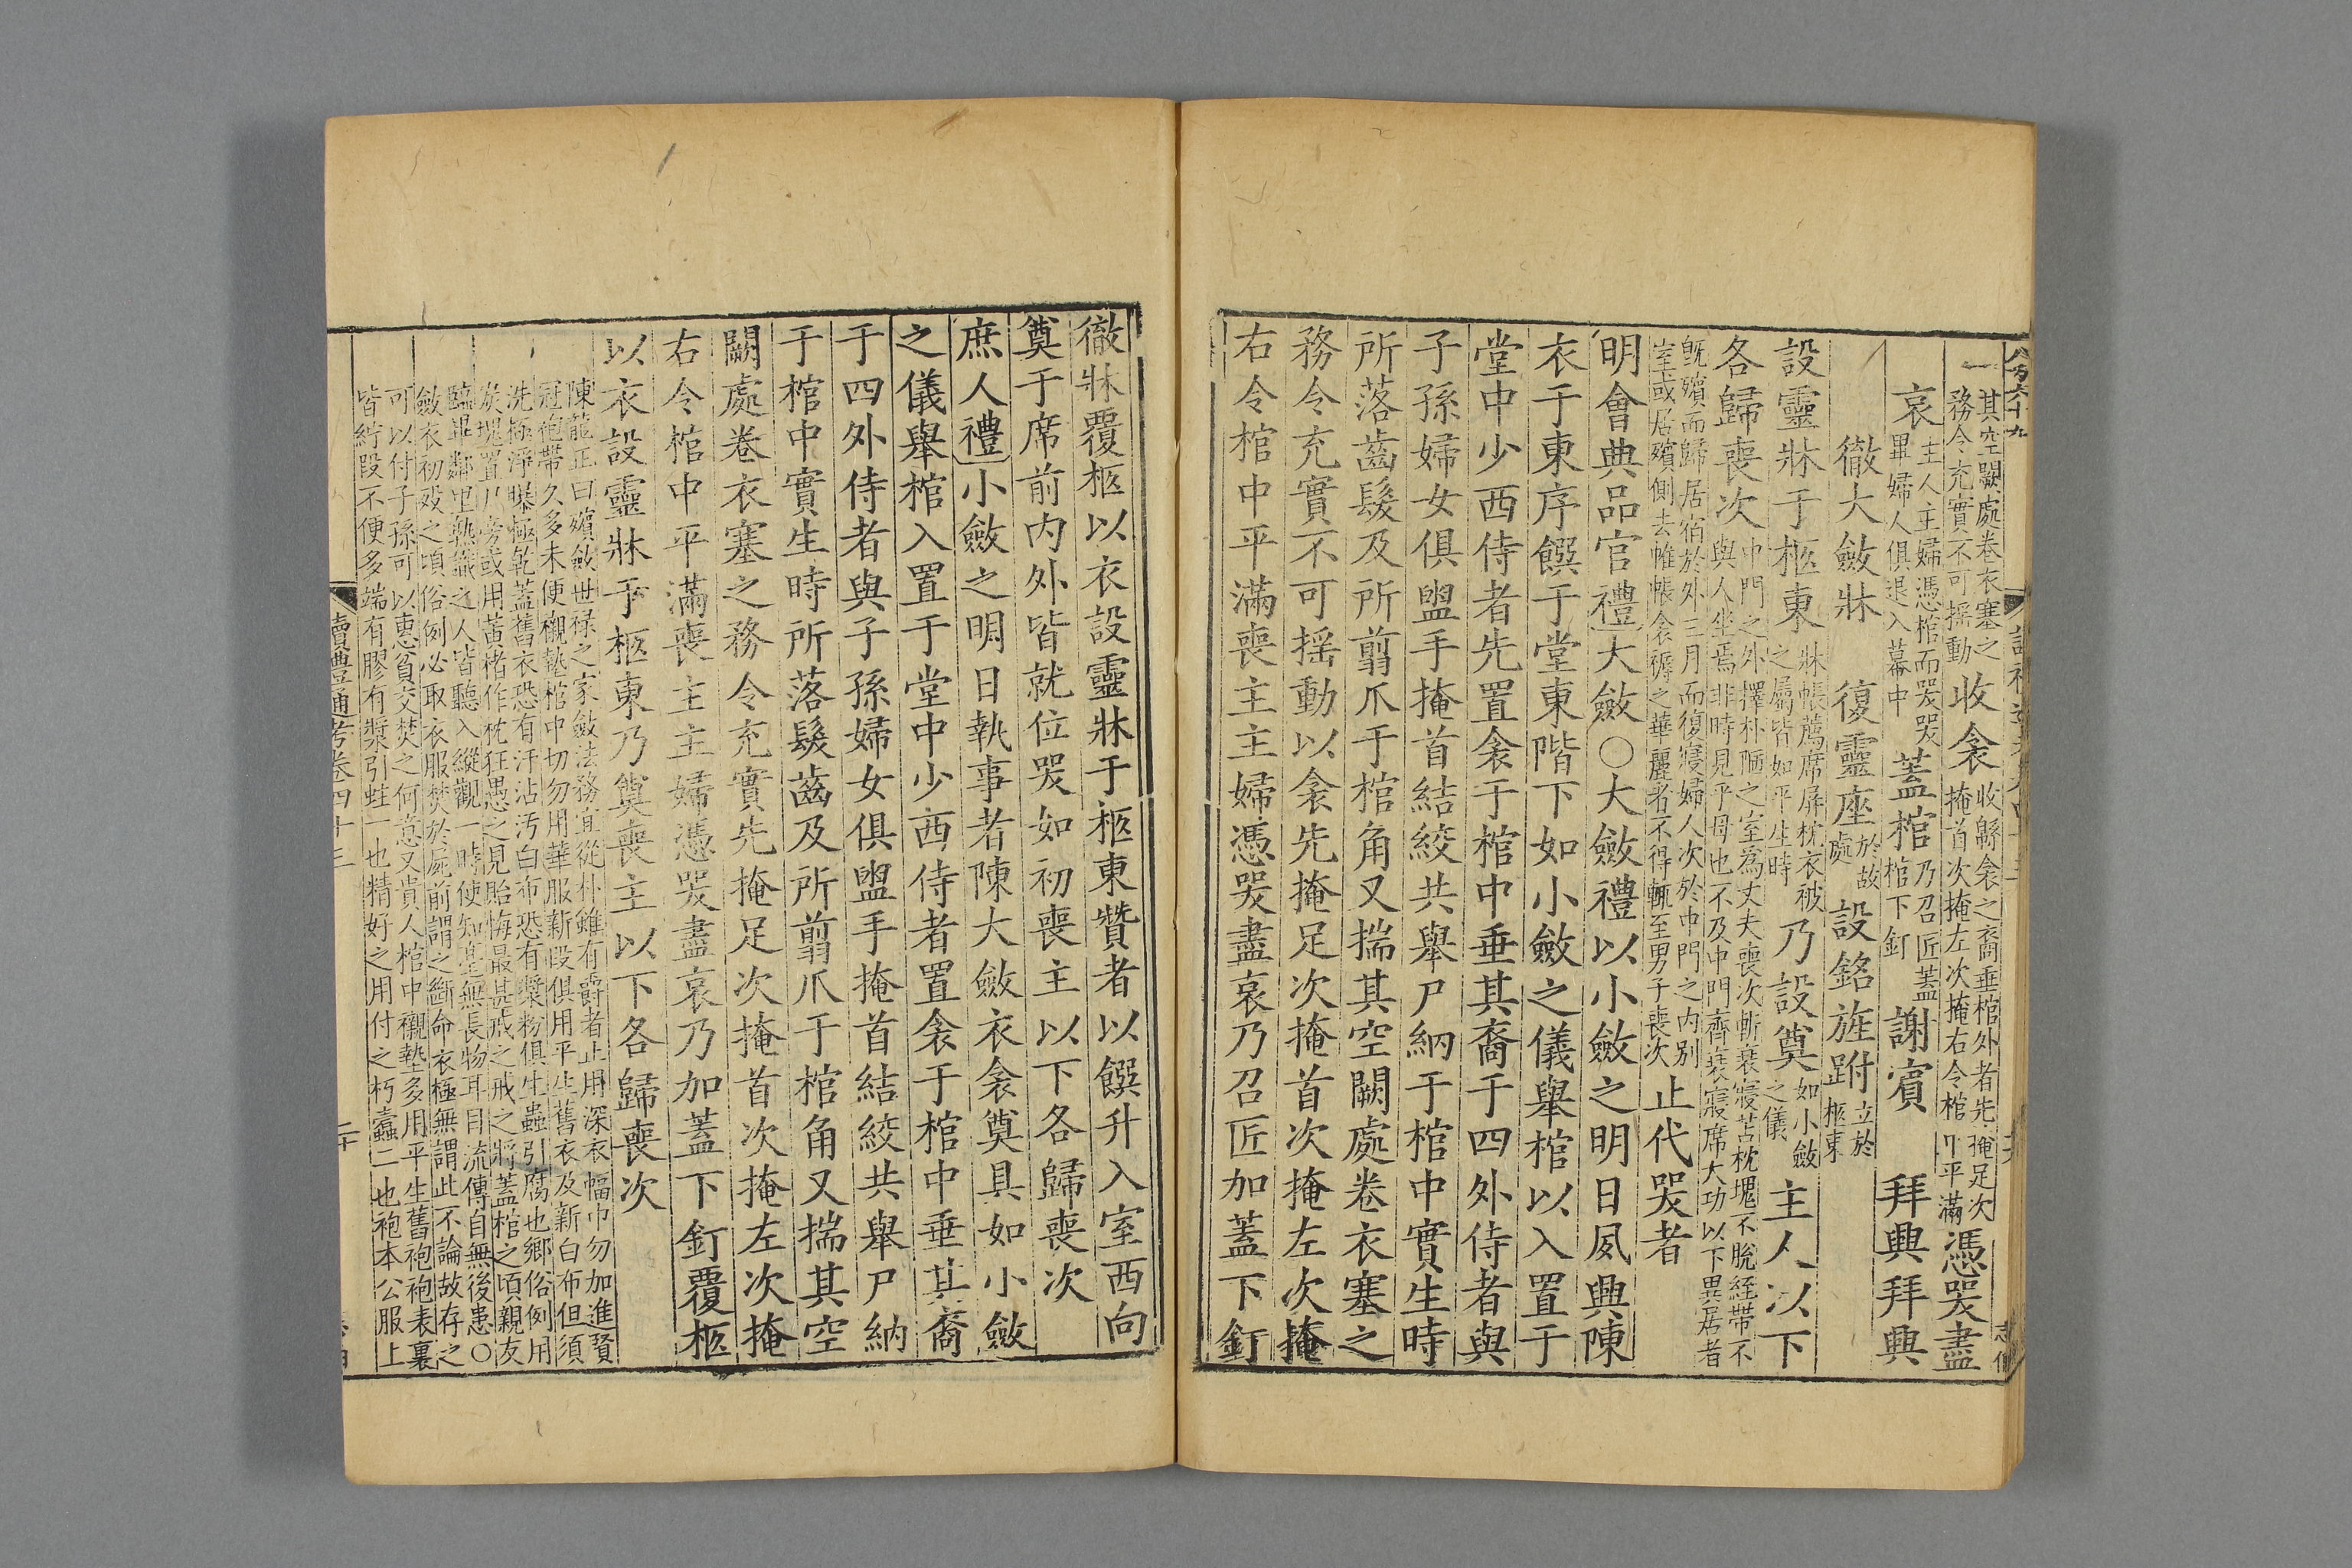 其空闕處卷衣塞之
務令充實不可摇動
收衾
收緜衾之裔垂棺外者先掩足次
掩首次掩左次掩右令棺中平滿
憑哭盡
哀
主人主婦憑棺而哭哭
畢婦人俱退入幕中
蓋棺
乃召匠蓋
棺下釘
謝賓 拜興拜興
徹大斂牀 復靈座
於故
處
設銘旌跗
立於
柩東
設靈牀于柩東
牀帳薦席屏枕衣被
之屬皆如平生時
乃設奠
如小斂
之儀
主人以下
各歸喪次
中門之外擇朴陋之室為丈夫喪次斬衰寢苫枕塊不脫絰帶不
與人坐焉非時見乎母也不及中門齊衰寢席大功以下異居者
既殯而歸居宿於外三月而復寢婦人次於中門之内别
室或居殯側去帷帳衾褥之華麗者不得輒至男子喪次
止代哭者
明會典品官禮大斂○大斂禮以小斂之明日夙興陳
衣于東序饌于堂東階下如小斂之儀舉棺以入置于
堂中少西侍者先置衾于棺中垂其裔于四外侍者與
子孫婦女俱盥手掩首結絞共舉尸納于棺中實生時
所落齒髮及所翦爪于棺角又揣其空闕處卷衣塞之
務令充實不可摇動以衾先掩足次掩首次掩左次掩
右令棺中平滿喪主主婦憑哭盡哀乃召匠加蓋下釘
徹牀覆柩以衣設靈牀于柩東贊者以饌升入室西向
奠于席前内外皆就位哭如初喪主以下各歸喪次
庶人禮小斂之明日執事者陳大斂衣衾奠具如小斂
之儀舉棺入置于堂中少西侍者置衾于棺中垂其裔
于四外侍者與子孫婦女俱盥手掩首結絞共舉尸納
于棺中實生時所落髮齒及所翦爪于棺角又揣其空
闕處卷衣塞之務令充實先掩足次掩首次掩左次掩
右令棺中平滿喪主主婦憑哭盡哀乃加蓋下釘覆柩
以衣設靈牀于柩東乃奠喪主以下各歸喪次
陳龍正曰殯斂世禄之家斂法務宜從朴雖有爵者止用深衣幅巾勿加進賢
冠袍帶久多未便襯墊棺中切勿用華服新段俱用平生舊衣及新白布但須
洗極淨曝極乾蓋舊衣恐有汗沾汚白布恐有漿粉俱生蟲引腐也鄉俗例用
炭塊置八旁或用黃楮作枕狂愚之見貽悔最甚戒之戒之將蓋棺之頃親友
臨畢鄰里熟識之人皆聽入縱觀一時使知塟無長物耳目流傳自無後患○
斂衣初殁之頃俗例必取衣服焚於屍前謂之斷命衣極無謂此不論故存之
可以付子孫可以惠貧交焚之何意又貴人棺中襯墊多用平生舊袍袍表裏
皆紵段不便多端有膠有漿引蛀一也精好之用付之朽蠹二也袍本公服上
讀禮通考卷四十三
二十